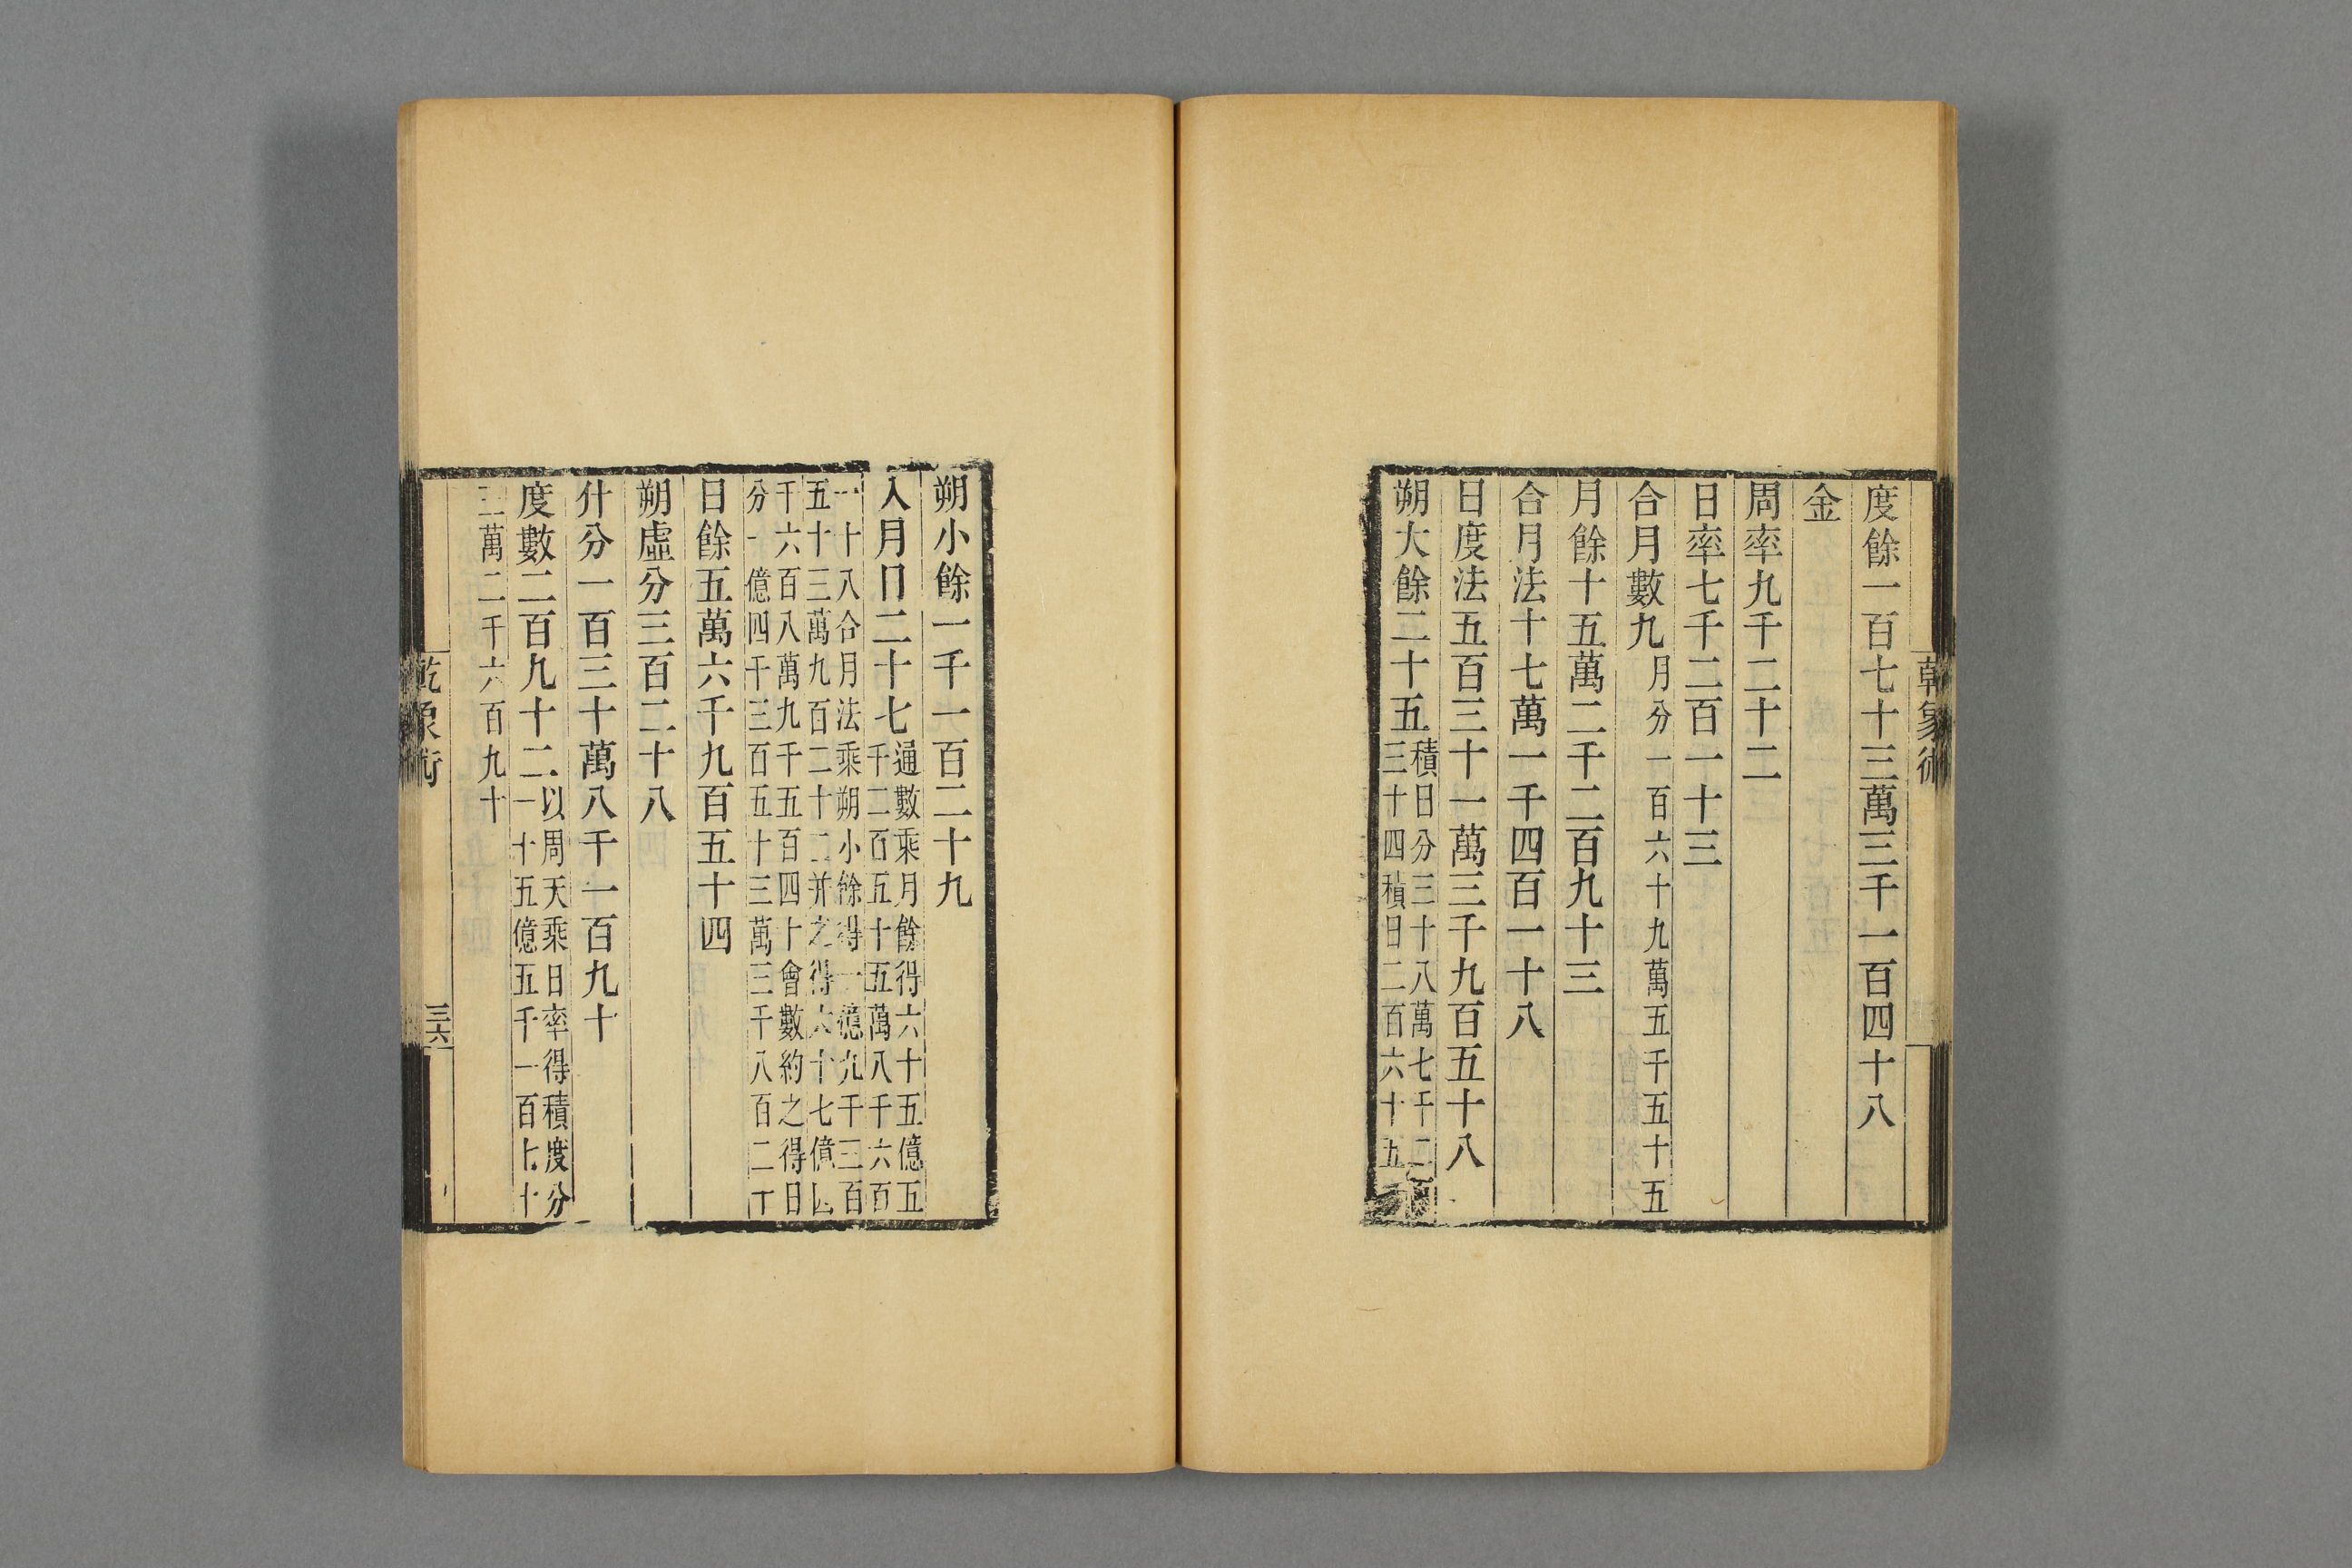 乾象術
度餘一百七十三萬三千一百四十八
金
周率九千二十二
日率七千二百一十三
合月數九
月分一百六十九萬五千五十五
月餘十五萬二千二百九十三
合月法十七萬一千四百一十八
日度法五百三十一萬三千九百五十八
朔大餘二十五
積日分三十八萬七千二
三十四積日二百六十五
朔小餘一千一百二十九
入月日二十七
通數乘月餘得六十五億五
千二百五十五萬八千六百
一十八合月法乘朔小餘得一億九千三百
五十三萬九百二十二并之得六十七億四
千六百八萬九千五百四十會數約之得日
分一億四千三百五十三萬三千八百二十
日餘五萬六千九百五十四
朔虛分三百二十八
什分一百三十萬八千一百九十
度數二百九十二
以周天乘日率得積度分
一十五億五千一百七十
二萬二千六百九十
乾象術
三六